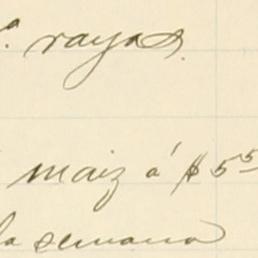 rayas.
maiz á $5 55
la semana